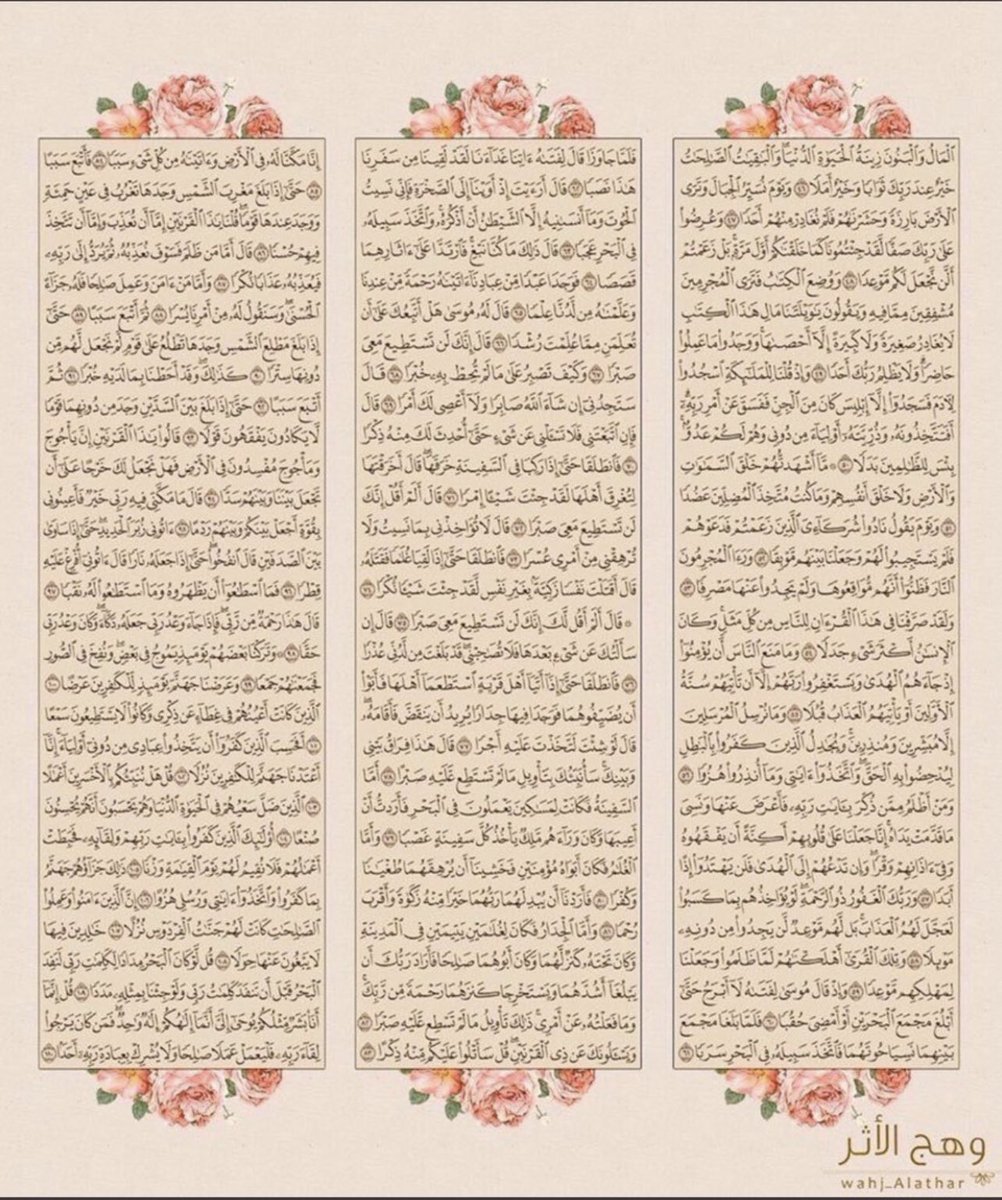 المال والبنون زينة الحيوة الدنيا والبقيت الصلحت
خير عند ربك ثوابا وخير أملا ٤٦ ويوم نسير الجبال وترى
الأرض بارزة وحشرنهم فلم نغادر منهم أحدا ٤٧ وعرضوا
على ربك صفا لقد جئتمونا كما خلقنكم أول مرة بل زعمتم
ألن نجعل لكم موعدا ٤٨ ووضع الكتب فترى المجرمين
مشفقين مما فيه ويقولون يويلتنا مال هذا الكتب
لا يغادر صغيرة ولا كبيرة إلا أحصىها ووجدوا ما عملوا
حاضرا ولا يظلم ربك أحدا ٤٩ وإذ قلنا للملئكة اسجدوا
لأدم فسجدوا إلا إبليس كان من الجن ففسق عن أمر ربه
أفتتخذونه وذريته أولياء من دوني وهم لكم عدو
بئس للظلمين بدلا ٥٠ ما أشهدتهم خلق السموت
والأرض ولا خلق أنفسهم وما كنت متخذ المضلين عضدا
٥١ ويوم يقول نادوا شركاءي الذين زعمتم فدعوهم
فلم يستجيبوا لهم وجعلنا بينهم موبقا ٥٢ ورءا المجرمون
النار فظنوا أنهم مواقعوها ولم يجدوا عنها مصرفا ٥٣
ولقد صرفنا في هذا القرءان للناس من كل مثل وكان
الإنسن أكثر شيء جدلا ٥٤ وما منع الناس أن يؤمنوا
إذ جاءهم الهدى ويستغفروا ربهم إلا أن تأتيهم سنة
الأولين أو يأتيهم العذاب قبلا ٥٥ وما نرسل المرسلين
إلا مبشرين ومنذرين ويجدل الذين كفروا بالبطل
ليدحضوا به الحق واتخذوا ءايتي وما أنذروا هزوا ٥٦
ومن أظلم ممن ذكر بءايت ربه فأعرض عنها ونسي
ما قدمت يداه إنا جعلنا على قلوبهم أكنة أن يفقهوه
وفي ءاذانهم وقرا وإن تدعهم إلى الهدى فلن يهتدوا إذا
أبدا ٥٧ وربك الغفور ذو الرحمة لو يؤاخذهم بما كسبوا
لعجل لهم العذاب بل لهم موعد لن يجدوا من دونه
موئلا ٥٨ وتلك القرى أهلكنهم لما ظلموا وجعلنا
لمهلكهم موعدا ٥٩ وإذ قال موسى لفتىه لا أبرح حتى
أبلغ مجمع البحرين أو أمضي حقبا ٦٠ فلما بلغا مجمع
بينهما نسيا حوتهما فاتخذ سبيله في البحر سربا ٦١
فلما جاوزا قال لفتىه ءاتنا غداءنا لقد لقينا من سفرنا
هذا نصبا ٦٢ قال أرءيت إذ أوينا إلى الصخرة فإني نسيت
الحوت وما أنسىنيه إلا الشيطن أن أذكره واتخذ سبيله
في البحر عجبا ٦٣ قال ذلك ما كنا نبغ فارتدا على ءاثارهما
قصصا ٦٤ فوجدا عبدا من عبادنا ءاتينه رحمة من عندنا
وعلمنه من لدنا علما ٦٥ قال له موسى هل أتبعك على أن
تعلمن مما علمت رشدا ٦٦ قال إنك لن تستطيع معي
صبرا ٦٧ وكيف تصبر على ما لم تحط به خبرا ٦٨ قال
ستجدني إن شاء الله صابرا ولا أعصي لك أمرا ٦٩ قال
فإن اتبعتني فلا تسءلني عن شيء حتى أحدث لك منه ذكرا
٧٠ فانطلقا حتى إذا ركبا في السفينة خرقها قال أخرقتها
لتغرق أهلها لقد جئت شيءا إمرا ٧١ قال ألم أقل إنك
لن تستطيع معي صبرا ٧٢ قال لا تؤاخذني بما نسيت ولا
ترهقني من أمري عسرا ٧٣ فانطلقا حتى إذا لقيا غلما فقتله
قال أقتلت نفسا زكية بغير نفس لقد جئت شيءا نكرا ٧٤
۞ قال ألم أقل لك إنك لن تستطيع معي صبرا ٧٥ قال إن
سألتك عن شيء بعدها فلا تصحبني قد بلغت من لدني عذرا
٧٦ فانطلقا حتى إذا أتيا أهل قرية استطعما أهلها فأبوا
أن يضيفوهما فوجدا فيها جدارا يريد أن ينقض فأقامه
قال لو شئت لتخذت عليه أجرا ٧٧ قال هذا فراق بيني
وبينك سأنبئك بتأويل ما لم تستطع عليه صبرا ٧٨ أما
السفينة فكانت لمسكين يعملون في البحر فأردت أن
أعيبها وكان وراءهم ملك يأخذ كل سفينة غصبا ٧٩ وأما
الغلم فكان أبواه مؤمنين فخشينا أن يرهقهما طغينا
وكفرا ٨٠ فأردنا أن يبدلهما ربهما خيرا منه زكوة وأقرب
رحما ٨١ وأما الجدار فكان لغلمين يتيمين في المدينة
وكان تحته كنز لهما وكان أبوهما صلحا فأراد ربك أن
يبلغا أشدهما ويستخرجا كنزهما رحمة من ربك
وما فعلته عن أمري ذلك تأويل ما لم تسطع عليه صبرا ٨٢
ويسءلونك عن ذي القرنين قل سأتلوا عليكم منه ذكرا ٨٣
إنا مكنا له في الأرض وءاتينه من كل شيء سببا ٨٤ فأتبع سببا
٨٥ حتى إذا بلغ مغرب الشمس وجدها تغرب في عين حمئة
ووجد عندها قوما قلنا يذا القرنين إما أن تعذب وإما أن تتخذ
فيهم حسنا ٨٦ قال أما من ظلم فسوف نعذبه ثم يرد إلى ربه
فيعذبه عذابا نكرا ٨٧ وأما من ءامن وعمل صلحا فله جزاء
الحسنى وسنقول له من أمرنا يسرا ٨٨ ثم أتبع سببا ٨٩ حتى
إذا بلغ مطلع الشمس وجدها تطلع على قوم لم نجعل لهم من
دونها سترا ٩٠ كذلك وقد أحطنا بما لديه خبرا ٩١ ثم
أتبع سببا ٩٢ حتى إذا بلغ بين السدين وجد من دونهما قوما
لا يكادون يفقهون قولا ٩٣ قالوا يذا القرنين إن يأجوج
ومأجوج مفسدون في الأرض فهل نجعل لك خرجا على أن
تجعل بيننا وبينهم سدا ٩٤ قال ما مكني فيه ربي خير فأعينوني
بقوة أجعل بينكم وبينهم ردما ٩٥ ءاتوني زبر الحديد حتى إذا ساوى
بين الصدفين قال انفخوا حتى إذا جعله نارا قال ءاتوني أفرغ عليه
قطرا ٩٦ فما اسطعوا أن يظهروه وما استطعوا له نقبا ٩٧
قال هذا رحمة من ربي فإذا جاء وعد ربي جعله دكاء وكان وعد ربي
حقا ٩٨ ۞ وتركنا بعضهم يومئذ يموج في بعض ونفخ في الصور
فجمعنهم جمعا ٩٩ وعرضنا جهنم يومئذ للكفرين عرضا ١٠٠
الذين كانت أعينهم في غطاء عن ذكري وكانوا لا يستطيعون سمعا
١٠١ أفحسب الذين كفروا أن يتخذوا عبادي من دوني أولياء إنا
أعتدنا جهنم للكفرين نزلا ١٠٢ قل هل ننبئكم بالأخسرين أعملا
١٠٣ الذين ضل سعيهم في الحيوة الدنيا وهم يحسبون أنهم يحسنون
صنعا ١٠٤ أولئك الذين كفروا بءايت ربهم ولقائه فحبطت
أعملهم فلا نقيم لهم يوم القيمة وزنا ١٠٥ ذلك جزاؤهم جهنم
بما كفروا واتخذوا ءايتي ورسلي هزوا ١٠٦ إن الذين ءامنوا وعملوا
الصلحت كانت لهم جنت الفردوس نزلا ١٠٧ خلدين فيها
لا يبغون عنها حولا ١٠٨ قل لو كان البحر مدادا لكلمت ربي لنفد
البحر قبل أن تنفد كلمت ربي ولو جئنا بمثله مددا ١٠٩ قل إنما
أنا بشر مثلكم يوحى إلي أنما إلهكم إله وحد فمن كان يرجوا
لقاء ربه فليعمل عملا صلحا ولا يشرك بعبادة ربه أحدا ١١٠
وهج الأثر
wahj_Alathar